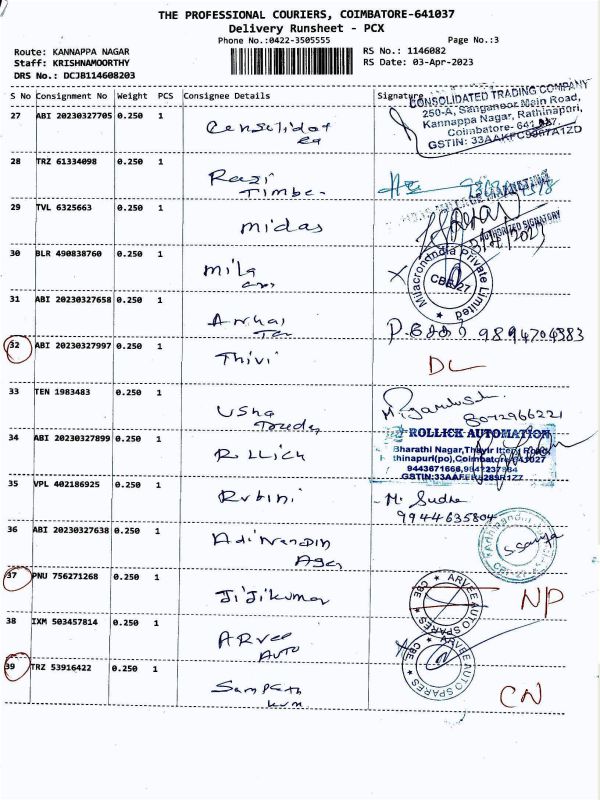 THE PROFESSIONAL COURIERS, COIMBATORE-641037
Delivery Runsheet - PCX
Phone No.:0422-3505555 Page No.:3
Route: KANNAPPA NAGAR RS No.: 1146082
Staff: KRISHNAMOORTHY RS Date: 03-Apr-2023
DRS No.: DCJB114608203
S No Consignment No Weight PCS Consignee Details Signature
CONSOLIDATED TRADING COMPANY
250-A, Sanganoor Main Road,
Kannappa Nagar, Rathinapuri,
Coimbatore- 641 027.
GSTIN: 33AAKFC9367A1ZD
27 ABI 20230327705 0.250 1 Consolidat
28 TRZ 61334098 0.250 1 Razi
Timber
29 TVL 6325663 0.250 1 Midas
AUTHORISED SIGNATORY
30 BLR 490838760 0.250 1 Mila
Milacron India Private Limited
CBE-27
31 ABI 20230327658 0.250 1
9894704383
32 ABI 20230327997 0.250 1 Thivi DL
33 TEN 1983483 0.250 1 Usha
8072966221
34 ABI 20230327899 0.250 1 Rollick
ROLLICK AUTOMATION
Bharathi Nagar, Thayir Itteri Road,
Rathinapuri(po), Coimbatore-641027
35 VPL 402186925 0.250 1 Rubini M. Sudha
9944635804
36 ABI 20230327638 0.250 1 Adinandin
37 PNU 756271268 0.250 1 Jijikumar NP
ARVEE AUTO SPARES
CBE
38 IXM 503457814 0.250 1 ARvee
AUTO
ARVEE AUTO SPARES
CBE
39 TRZ 53916422 0.250 1 Sampath
CN